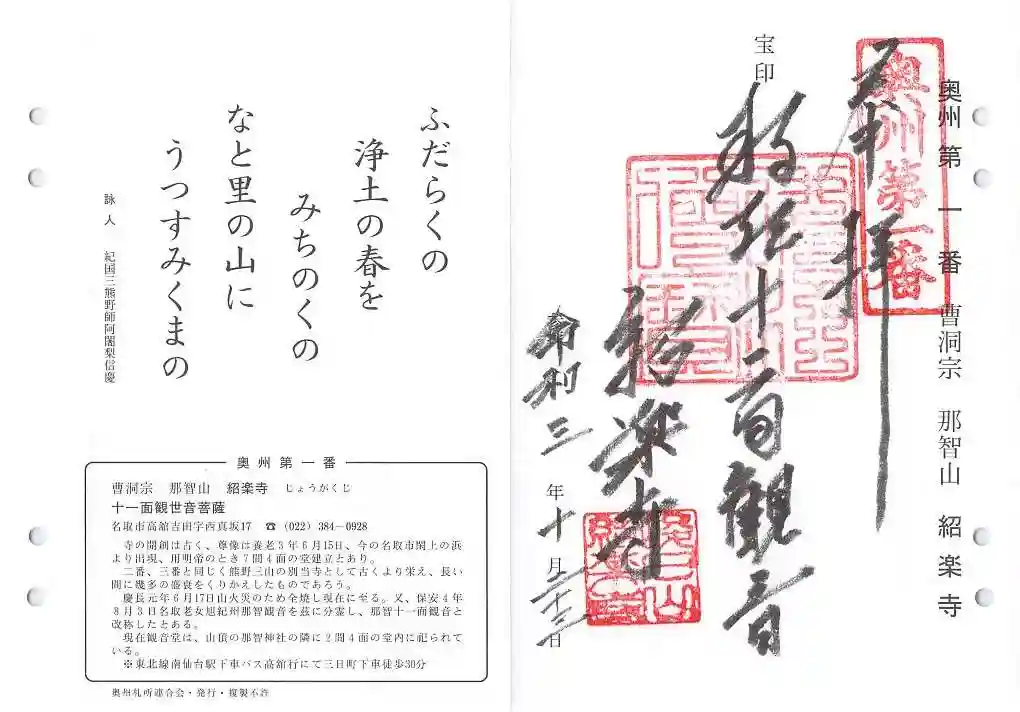 奥州第一番 曹洞宗 那智山 紹楽寺
奥州第一番
奉拝
宝印
十一面観音
紹楽寺
令和三年十月二十三日
ふだらくの
浄土の春を
みちのくの
なと里の山に
うつすみくまの
詠人 紀国三熊野師阿闍梨信慶
奥州第一番
曹洞宗 那智山 紹楽寺 じょうがくじ
十一面観世音菩薩
名取市高舘吉田字西真坂17 ☎(022)384-0928
寺の開創は古く、尊像は養老3年6月15日、今の名取市閖上の浜
より出現、用明帝のとき7間4面の堂建立とあり。
二番、三番と同じく熊野三山の別当寺として古くより栄え、長い
間に幾多の盛衰をくりかえしたものであろう。
慶長元年6月17日山火災のため全焼し現在に至る。又、保安4年
8月3日名取老女旭紀州那智観音を玆に分霊し、那智十一面観音と
改称したとある。
現在観音堂は、山頂の那智神社の隣に2間4面の堂内に祀られて
いる。
※東北線南仙台駅下車バス高舘行にて三日町下車徒歩30分
奥州札所連合会・発行・複製不許